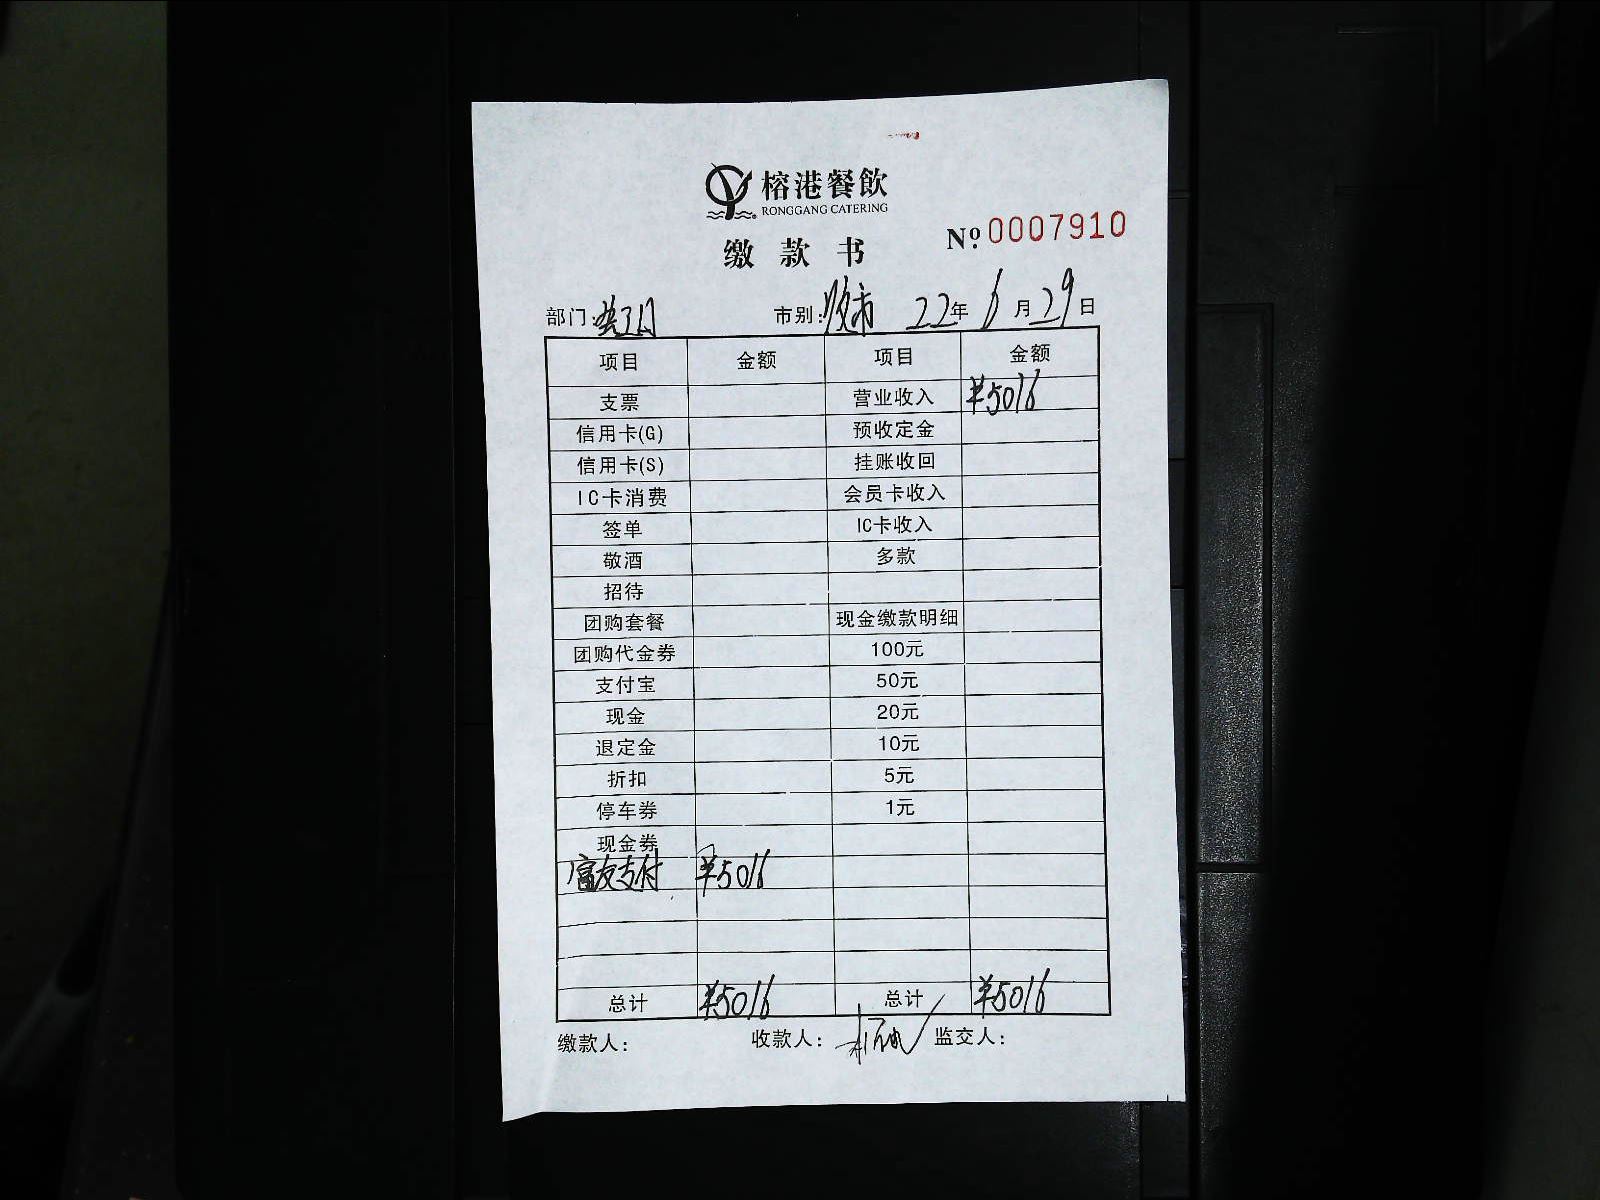 榕港餐飲
RONGGANG CATERING
缴款书 №0007910
部门: 市别:夜市 22年6月29日
项目 金额 项目 金额
支票 营业收入 ¥5016
信用卡(G) 预收定金
信用卡(S) 挂账收回
IC卡消费 会员卡收入
签单 IC卡收入
敬酒 多款
招待
团购套餐 现金缴款明细
团购代金券 100元
支付宝 50元
现金 20元
退定金 10元
折扣 5元
停车券 1元
现金券
富友支付 ¥5016
总计 ¥5016 总计 ¥5016
缴款人: 收款人: 监交人: